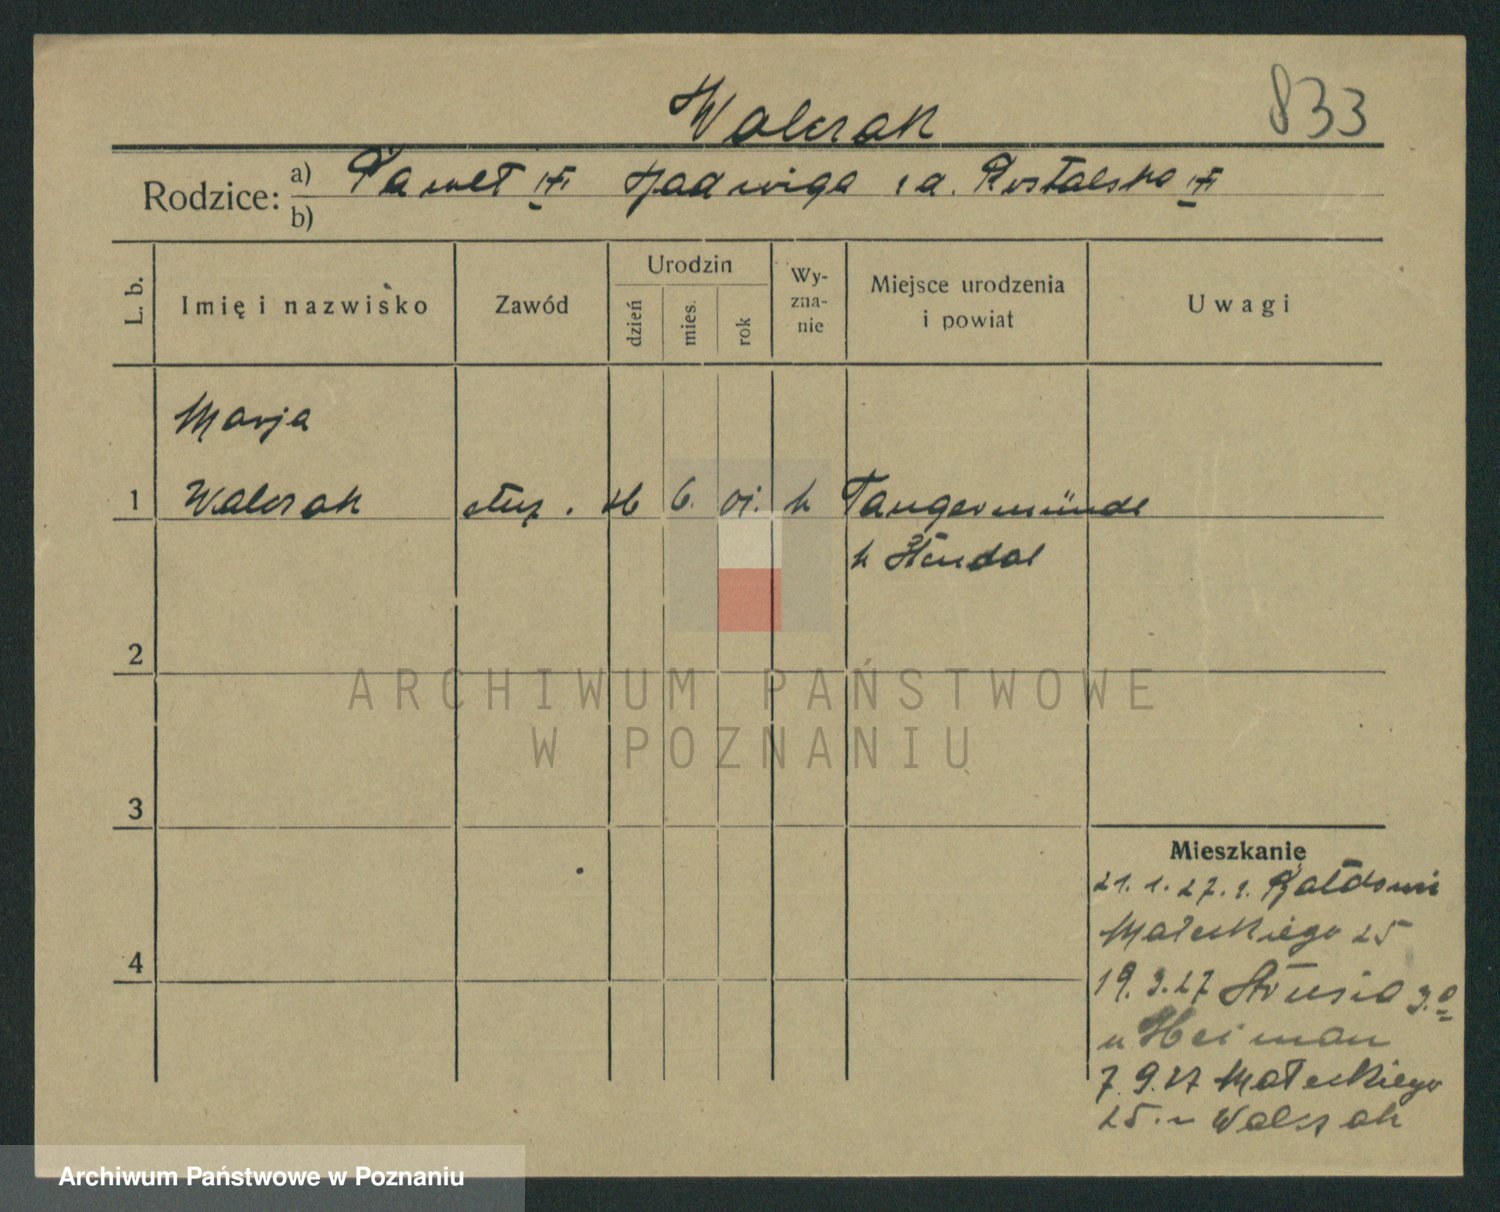 Walczak 833
Rodzice: a) Paweł Hadwiga z d. Rostalska
b)
L. b. Imię i nazwisko Zawód Urodzin dzień mies. rok Wy-zna-nie Miejsce urodzenia i powiat Uwagi
Marja
1 Walczak służ. 6. 01. k Tangermünde
k Stendal
2
ARCHIWUM PAŃSTWOWE
W POZNANIU
3
Mieszkanie
21.1.27. z
Małeckiego 25
4
19.3.27 Strusia 3.a
u Heiman
7.9.27 Małeckiego
25. u Walczak
Archiwum Państwowe w Poznaniu